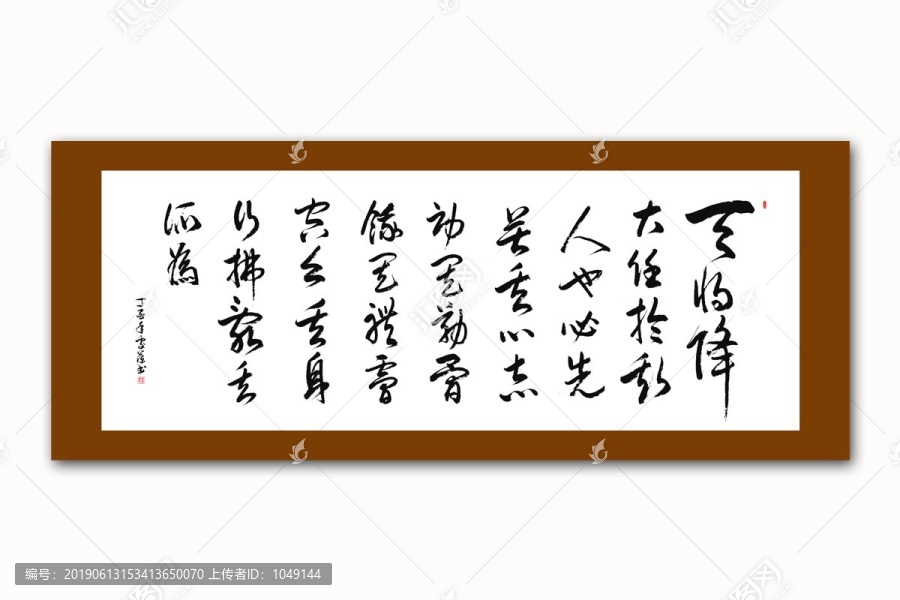 天将降
大任於斯
人也必先
苦其心志
勞其筋骨
餓其體膚
空乏其身
行拂亂其
所為
丁酉年書
编号：20190613153413650070 上传者ID：1049144